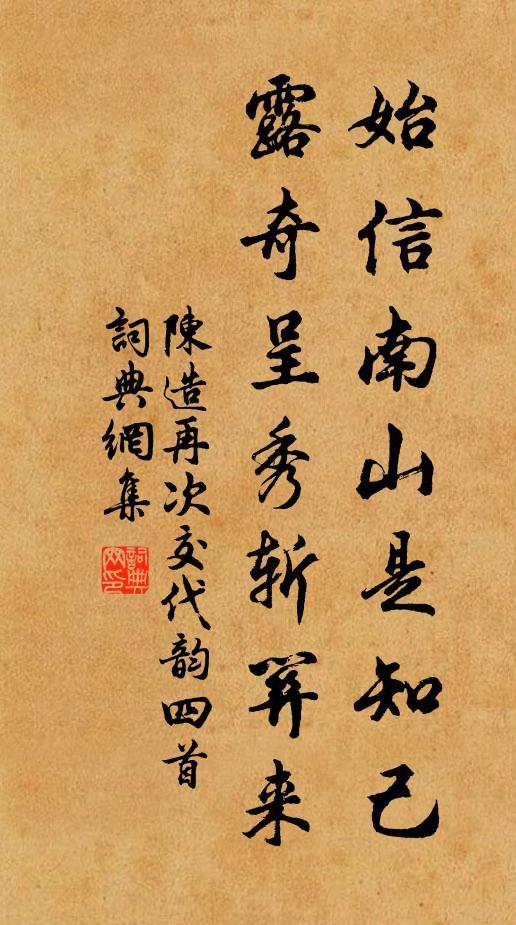 始信南山是知己
露奇呈秀斬開来
陳造再次交代韵四首
詞典網集
詞典
网印